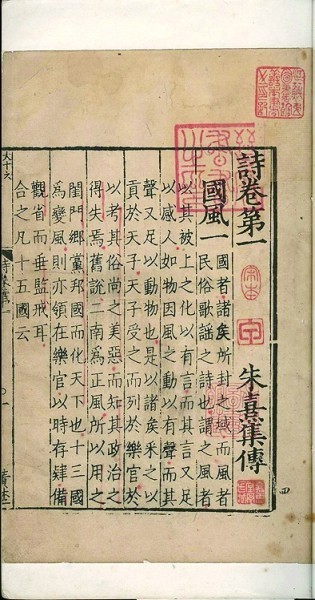 詩卷第一
朱熹集傳
國風一
國者諸侯所封之域而風者
民俗歌謡之詩也謂之風者
以其被上之化以有言而其言又足
以感人如物因風之動以有聲而其
聲又足以動物也是以諸侯采之以
貢於天子天子受之而列於樂官於
以考其俗尚之美惡而知其政治之
得失焉舊說二南為正風所以用之
閨門鄉黨邦國而化天下也十三國
為變風則亦領在樂官以時存肄備
觀省而垂監戒耳
合之凡十五國云